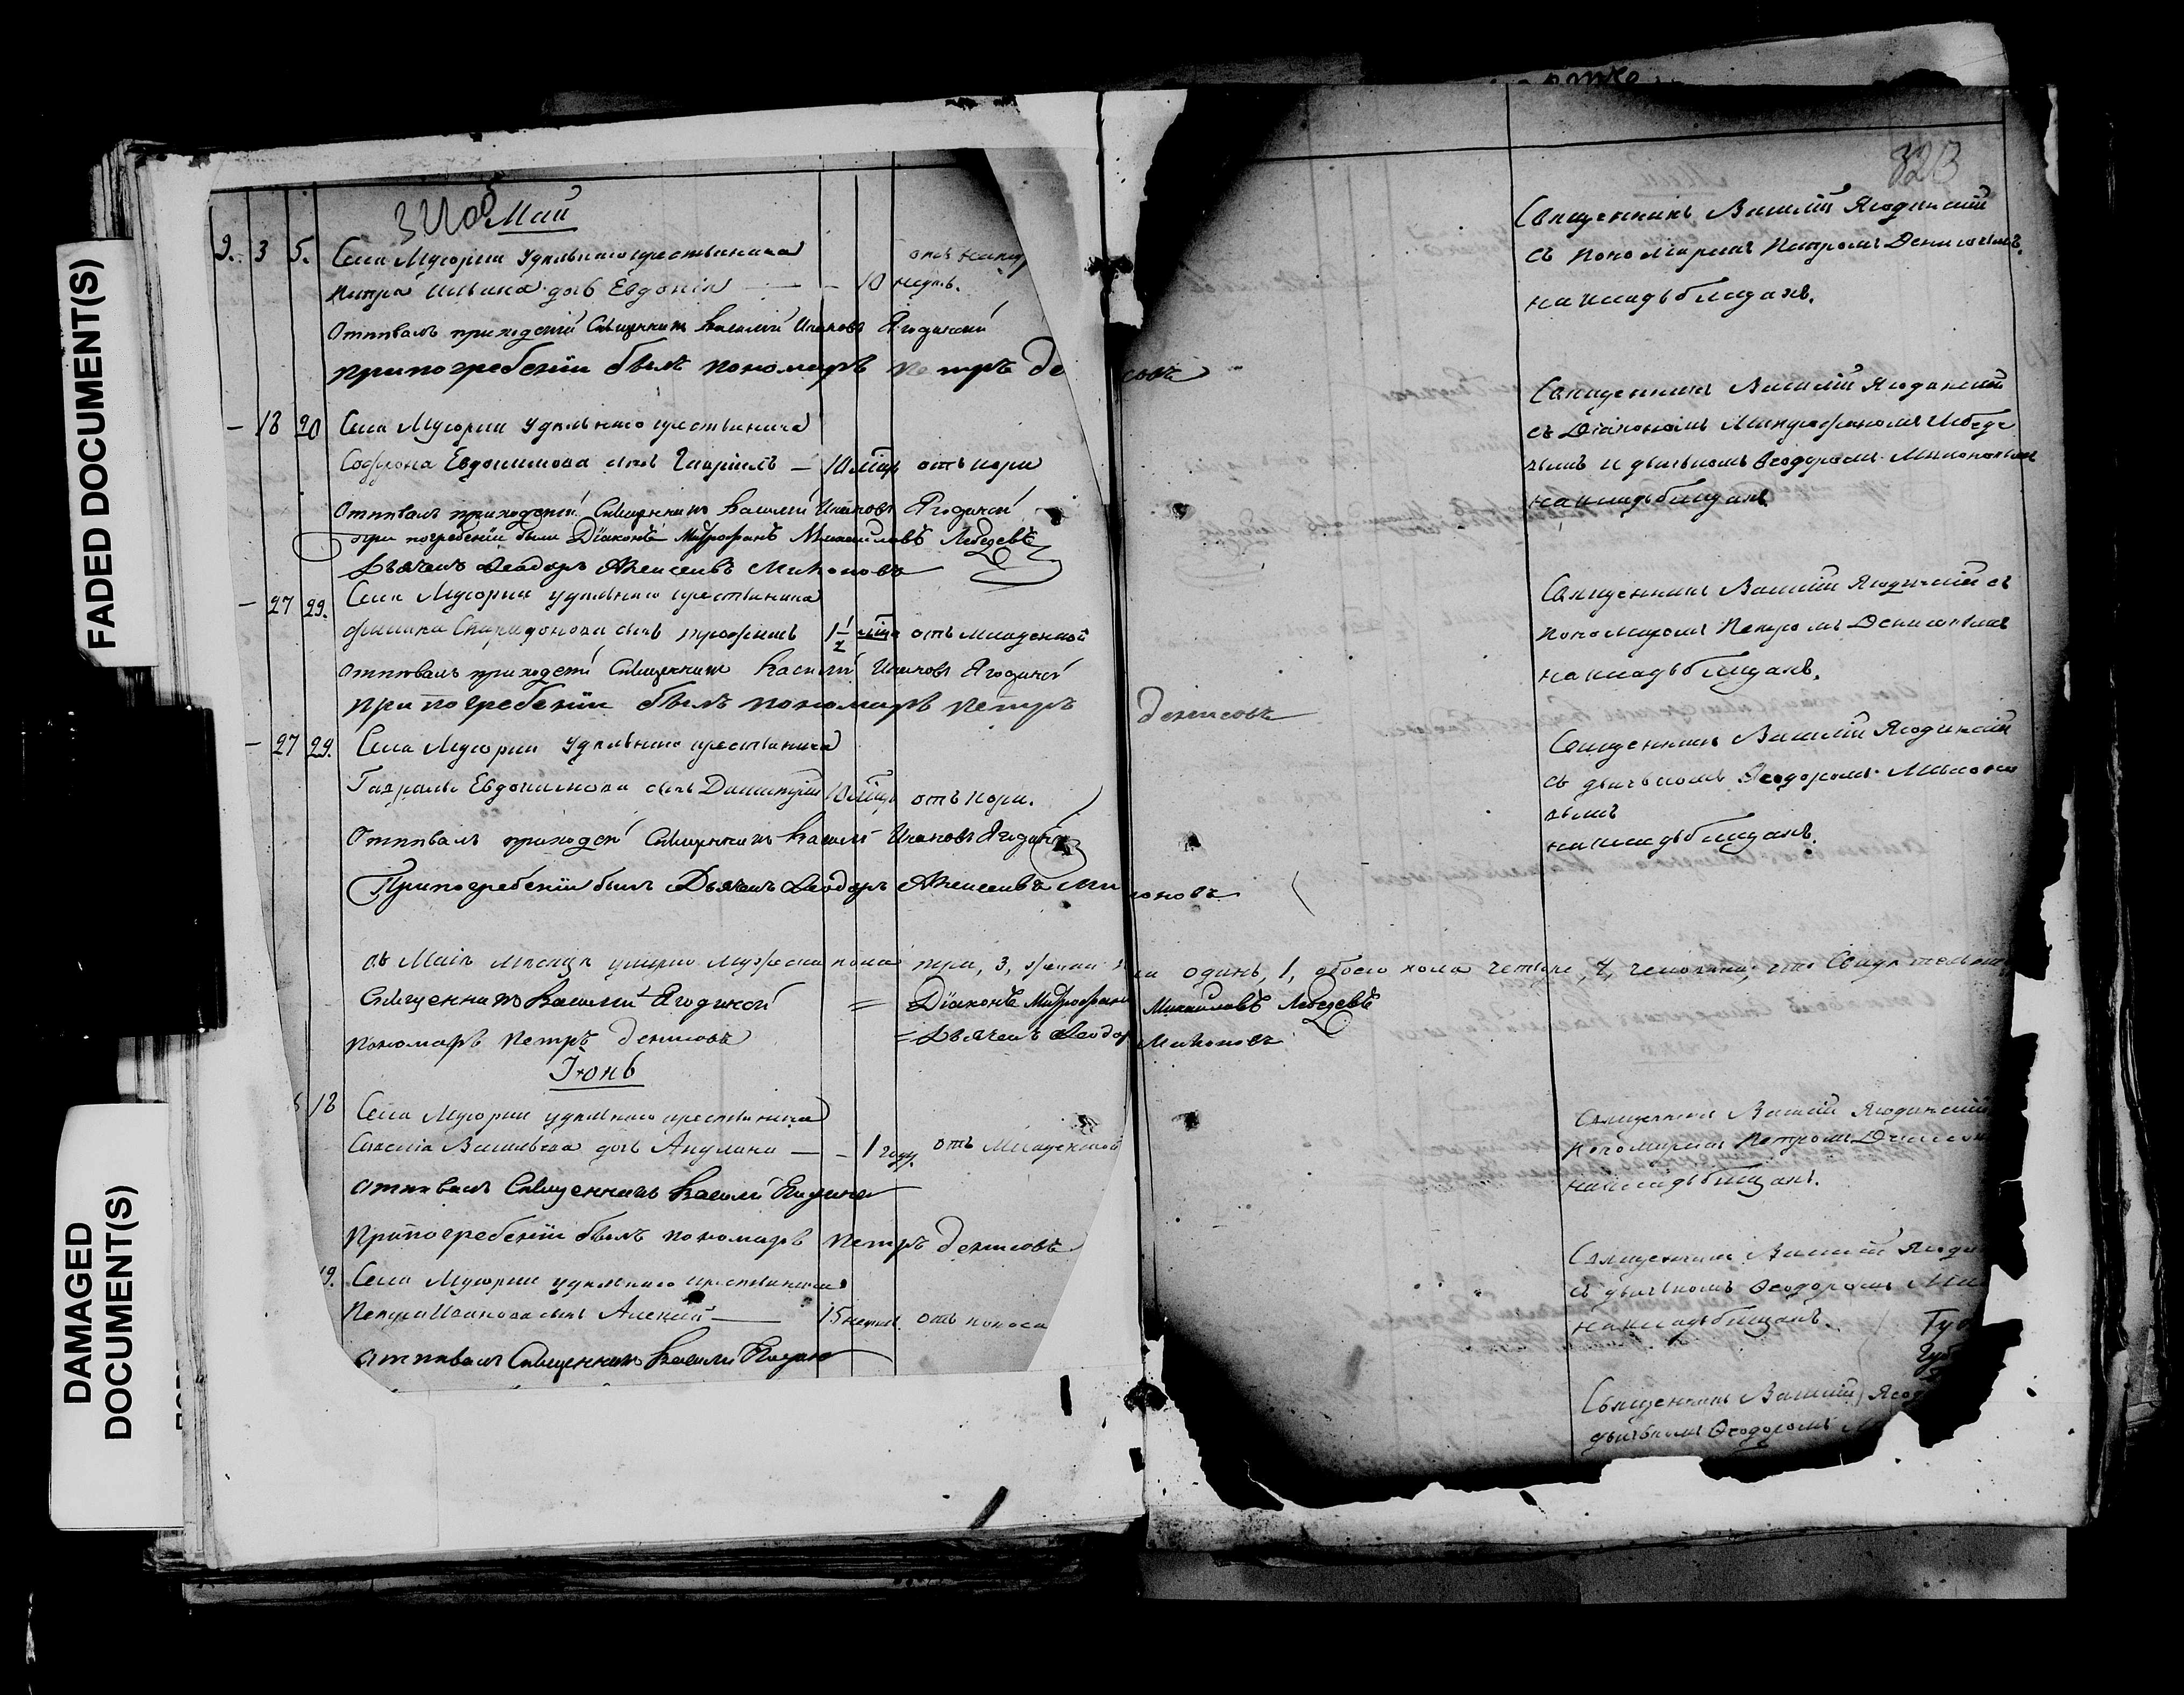 FADED DOCUMENT(S)
DAMAGED DOCUMENT(S)
Май
2. 3 5. Села Мусорки Удѣльнаго крестьянина
Петра Ильина дочь Евдокія — 10 недѣль.
Отпѣвалъ приходскій Священникъ Василій Ивановъ Ягодинскій
при погребеніи былъ пономарь петръ денисовъ
— 18 20 Села Мусорки Удѣльнаго крестьянина
Софрона Евдокимова сынъ Гавріилъ — 10 мѣсц отъ кори
Отпѣвалъ приходскій Священникъ Василій Ивановъ Ягодинскій
при погребеніи были Діаконъ Митрофанъ Михайловъ Лебедевъ
Дьячекъ Ѳеодоръ Алексеевъ Милоновъ
— 27 29. Села Мусорки удѣльнаго крестьянина
Спиридонова сынъ Трофимъ 1 1/2 мѣсц отъ младенской
Отпѣвалъ приходскій Священникъ Василій Ивановъ Ягодинскій
при погребеніи былъ пономарь петръ денисовъ
— 27 29. Села Мусорки Удѣльнаго крестьянина
Гаврила Евдокимова сынъ Димитрій 10 мѣсц отъ кори.
Отпѣвалъ приходскій Священникъ Василій Ивановъ Ягодинскій
При погребеніи былъ Дьячекъ Ѳеодоръ Алексеевъ Милоновъ
въ Маіѣ мѣсяцѣ умерло мужеска пола три, 3, женска пола одинъ, 1, обоего пола четыре, 4, человѣка; что Свидѣтельствуемъ
Священникъ Василій Ягодинскій = Діаконъ Митрофанъ Михайловъ Лебедевъ
пономарь петръ денисовъ = Дьячекъ Ѳеодоръ Милоновъ
Іюнь
18 Села Мусорки удѣльнаго крестьянина
Савелія Васильева дочь Акулина — — 1 году. отъ Младенской
Отпѣвалъ Священникъ Василій Ягодинскій
При погребеніи былъ пономарь петръ денисовъ
19. Села Мусорки удѣльнаго крестьянина
Петра Иванова сынъ Алексѣй — 15 недѣль. отъ поноса
Отпѣвалъ Священникъ Василій Ягодинскій
Священникъ Василій Ягодинскій
съ пономаремъ Петромъ Денисовымъ.
на кладбищахъ.
Священникъ Василій Ягодинскій
съ Діакономъ Митрофаномъ Лебеде
вымъ и дьячкомъ Ѳеодоромъ Милоновымъ
на кладбищахъ
Священникъ Василій Ягодинскій съ
пономаремъ Петромъ Денисовымъ
на кладбищахъ.
Священникъ Василій Ягодинскій
съ дьячкомъ Ѳеодоромъ Милоно
вымъ
на кладбищахъ.
Священникъ Василій Ягодинскій
пономаремъ Петромъ Денисов
на кладбищахъ.
Священникъ Василій Ягоди
съ дьячкомъ Ѳеодоромъ Ми
на кладбищахъ.
Священникъ Василій Ягод
дьячкомъ Ѳеодоромъ М